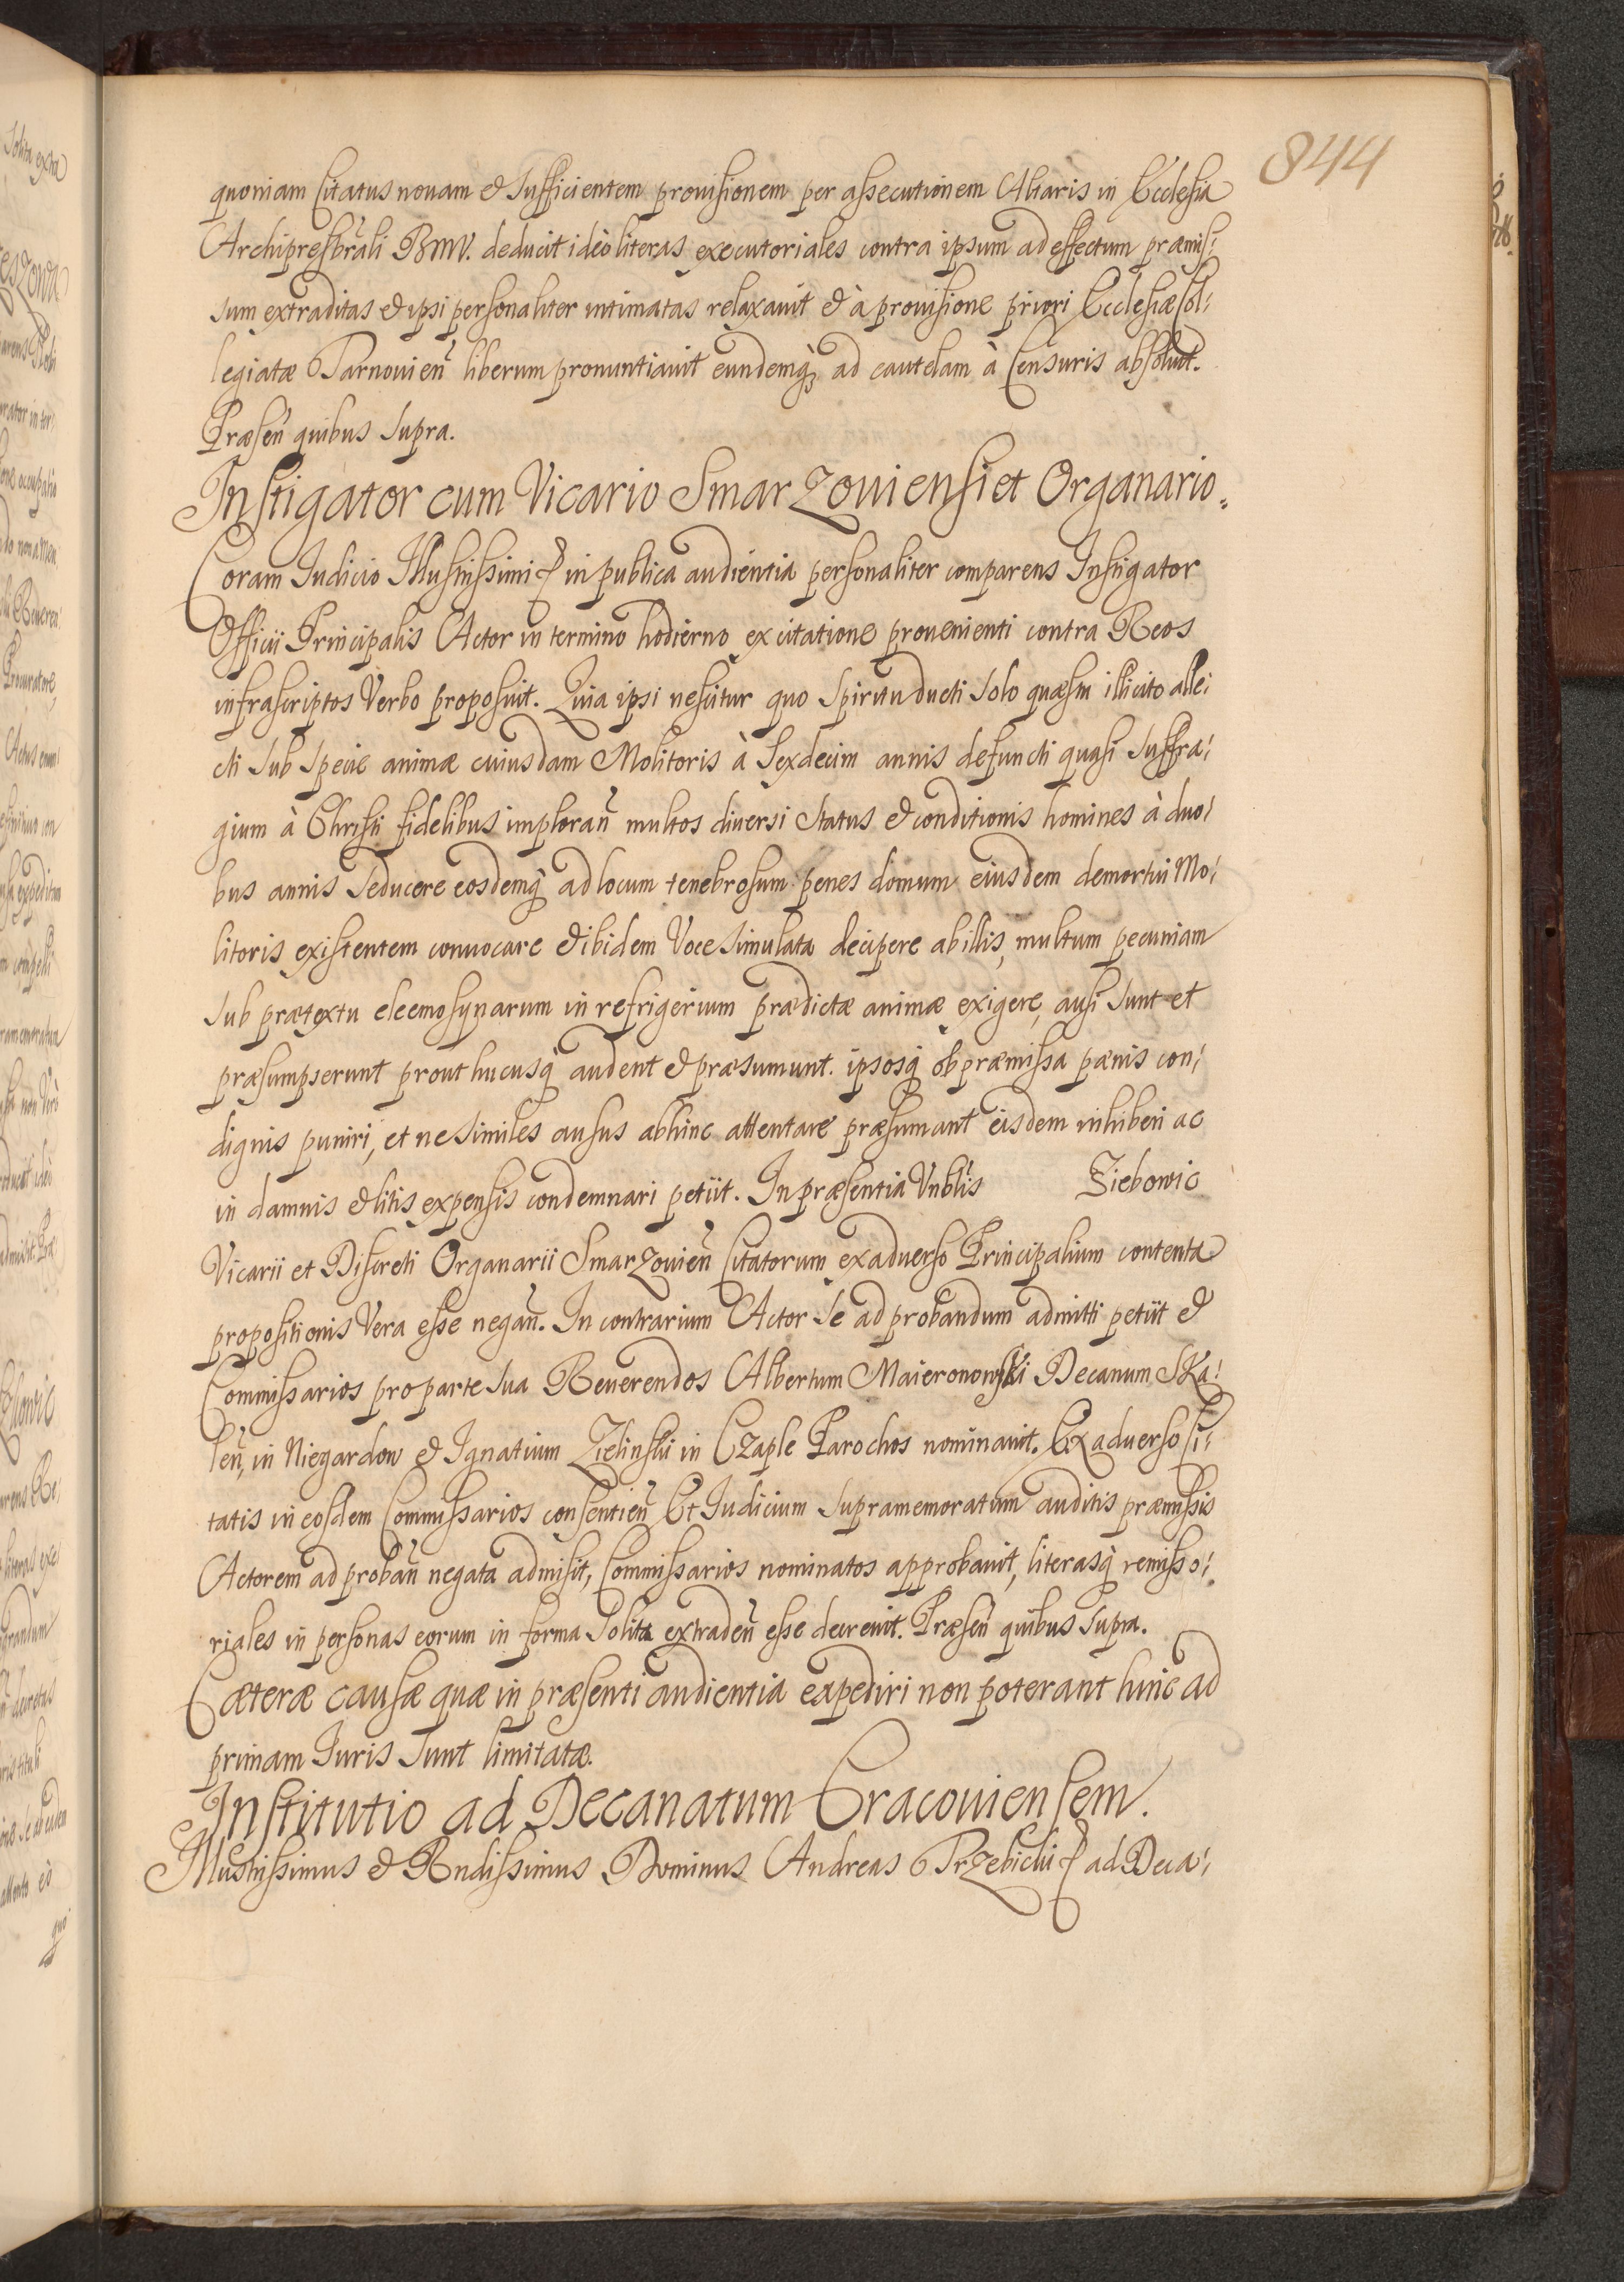 844
quoniam Citatus nouam et sufficientem prouisionem per assecutionem Altaris in Ecclesia
Archipresbrali BMV. deducit ideo literas executoriales contra ipsum ad effectum præmis-
sum extraditas et ipsi personaliter intimatas relaxauit et à prouisione priori Ecclesiæ Col-
legiatæ Tarnouien liberum pronuntiauit eundemq̃ ad cautelam à Censuris absoluit.
Præsen quibus supra.
Instigator cum Vicario Smarzouiensi et Organario.
Coram Iudicio Illustrissimi in publica audientia personaliter comparens Instigator
Officii Principalis Actor in termino hodierno ex citatione prouenienti contra Reos
infrascriptos Verbo proposuit. Quia ipsi nescitur quo spiritu ducti solo quæstu illicito alle-
cti sub specie animæ cuiusdam Molitoris à sexdecim annis defuncti quasi suffra-
gium à Christi fidelibus imploran̄ multos diuersi status et conditionis homines à duo-
bus annis seducere eosdemq̃ ad locum tenebrosum penes domum eiusdem demortui Mo-
litoris existentem conuocare et ibidem Voce simulata decipere ab illis, multum pecuniam
sub prætextu eleemosynarum in refrigerium prædictæ animæ exigere, ausi sunt et
præsumpserunt prout hucusq̃ audent et præsumunt. ipsosq̃ ob præmissa pænis con-
dignis puniri, et ne similes ausus abhinc attentare præsumant eisdem inhiberi ac
in damnis et litis expensis condemnari petiit. In præsentia Vnblis Ziebowic
Vicarii et Discreti Organarii Smarzouien̄ Citatorum ex aduerso Principalium contenta
propositionis Vera esse negan̄. In contrarium Actor se ad probandum admitti petiit et
Commissarios pro parte sua Reuerendos Albertum Maieronowski Decanum Ska-
len̄, in Niegardow et Ignatium Zielinski in Czaple Parochos nominauit. Ex aduerso Ci-
tatis in eosdem Commissarios consentien̄ Et Iudicium supramemoratum auditis præmissis
Actorem ad proban̄ negata admisit, Commissarios nominatos approbauit, literasq̃ remisso-
riales in personas eorum in forma solita extraden̄ esse decreuit. Præsen̄ quibus supra.
Cæteræ causæ quæ in præsenti audientia expediri non poterant hinc ad
primam Iuris sunt limitatæ.
Institutio ad Decanatum Cracouiensem.
Illustrissimus et Rndissimus Dominus Andreas Trzebicki ad Deca-